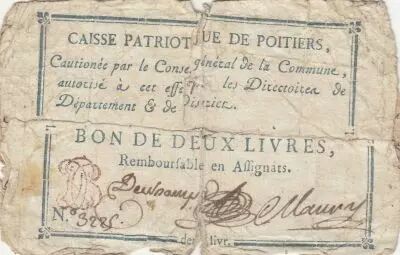 CAISSE PATRIOTIQUE DE POITIERS,
Cautionée par le Conseil général de la Commune,
autorisé à cet effet par les Directoires de
Département & de District.
BON DE DEUX LIVRES,
Remboursable en Assignats.
Maury
N.º 3225
deux livr.